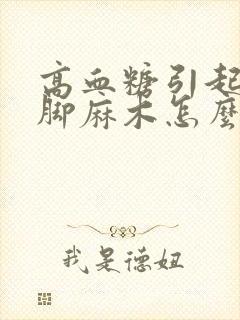 高血糖引起
脚麻木怎麼
我是德妞